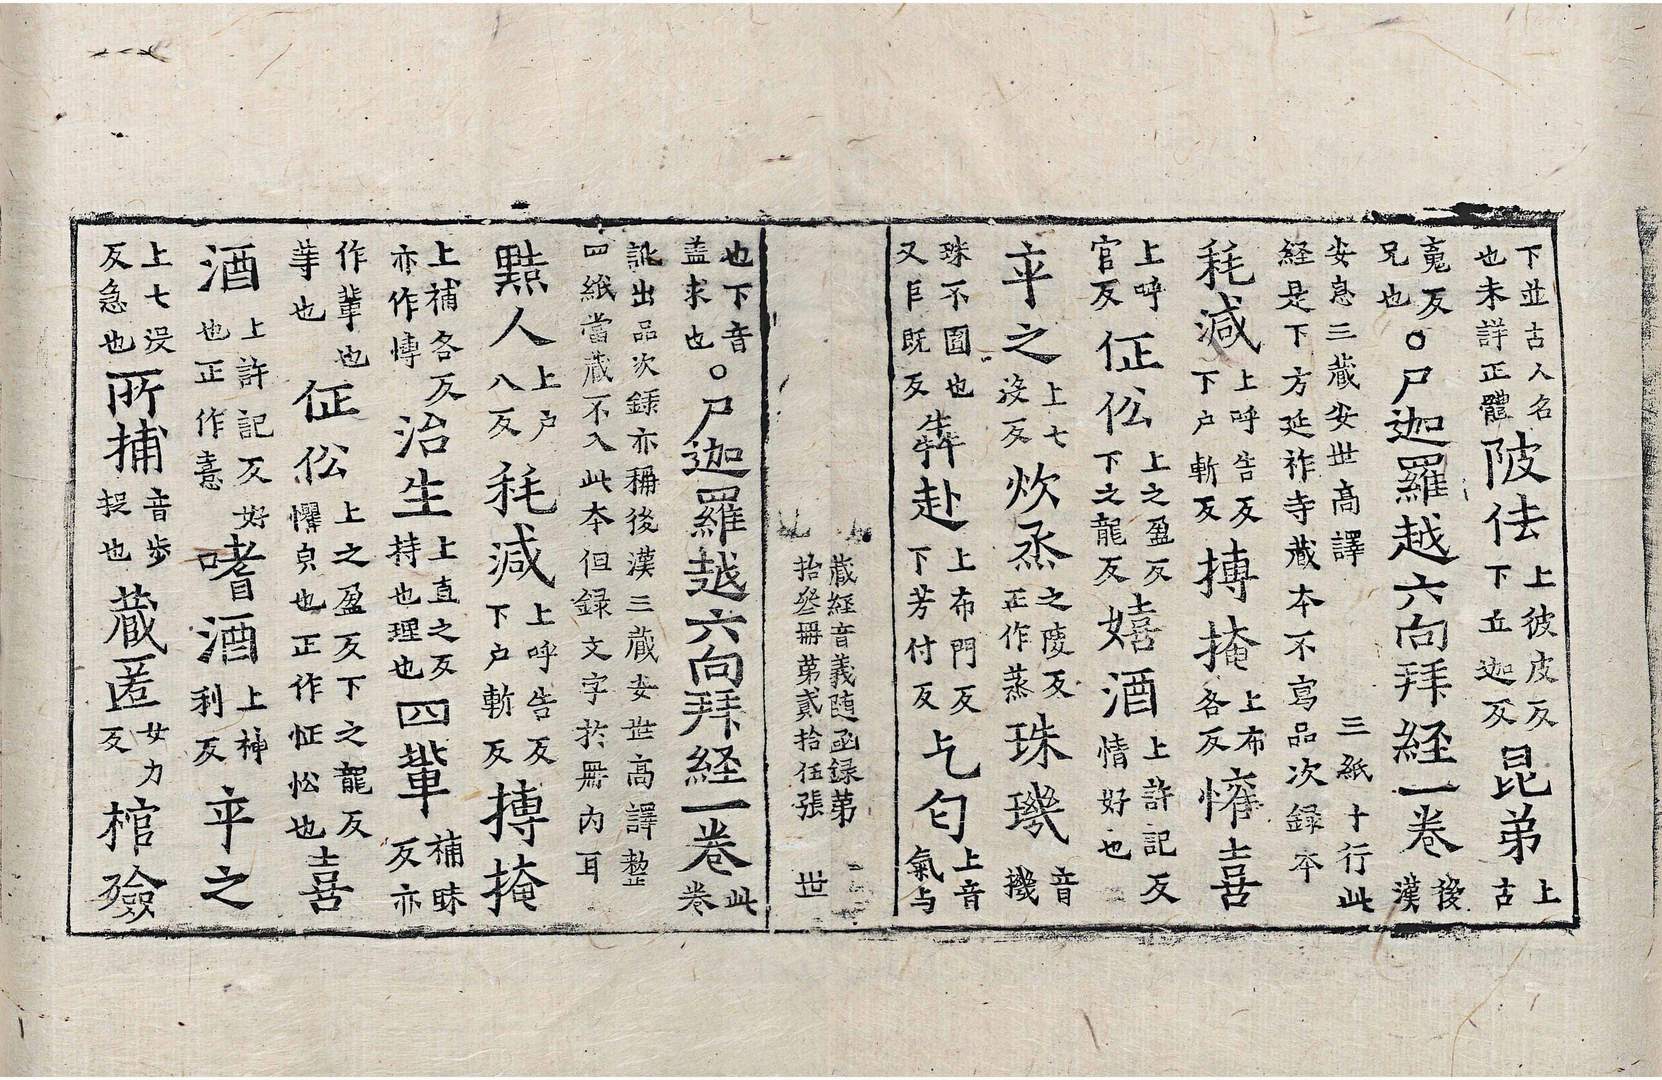 下並古人名也未詳正體陂佉上彼皮反下丘迦反昆弟上古
䰟反兄也○尸迦羅越六向拜経一卷後漢
安息三藏安世高譯三紙十行此経是下方延祚寺藏本不寫品次録本
秏減上呼告反下户斬反摶掩上布各反慵喜
上呼官反伀上之盈反下之龍反嬉酒上許記反情好也
卒之上七没反炊烝之陵反正作蒸珠璣音機
珠不圎也又巨既反犇赴上布門反下芳付反乞匂上音氣与
藏経音義随函録第拾叄冊第貳拾伍張 世
也下音盖求也○尸迦羅越六向拜経一卷此卷
訛出品次録亦稱後漢三藏安世高譯整四紙當藏不入此本但録文字於冊内耳
黠人上户八反秏減上呼告反下户斬反摶掩
上補各反亦作慱治生上直之反持也理也四軰補昧反亦
作輩也䓁也伀上之盈反下之龍反懼皃也正作怔忪也喜
酒上許記反好也正作憙嗜酒上神利反卒之
上七没反急也所捕音步捉也蔵匿女力反棺殮